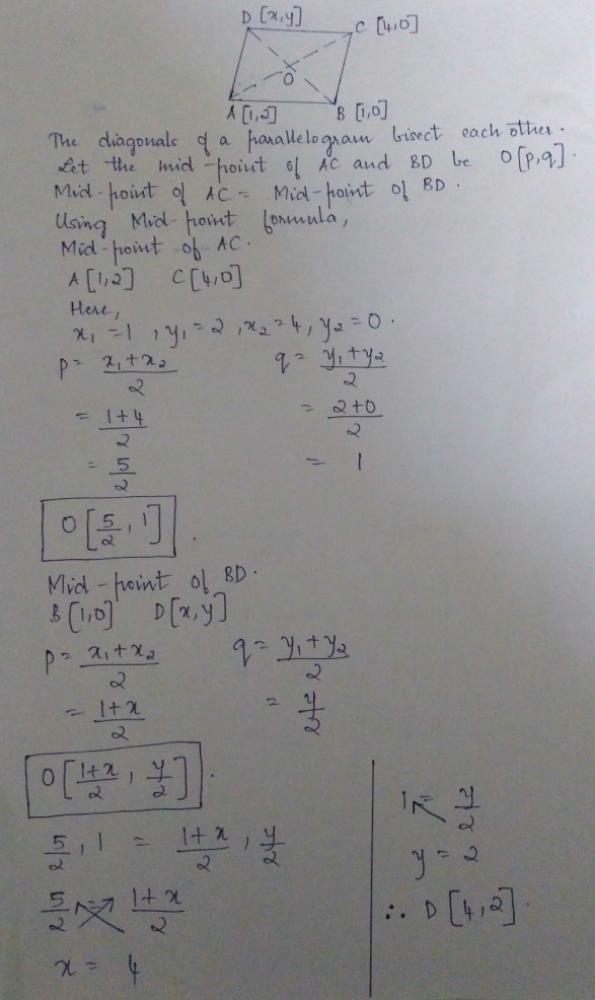 D [x,y]
C [4,0]
O
A [1,2]
B [1,0]
The diagonals of a parallelogram bisect each other.
Let the mid-point of AC and BD be O[p,q].
Mid-point of AC = Mid-point of BD.
Using Mid-point formula,
Mid-point of AC.
A[1,2] C[4,0]
Here,
x₁ = 1, y₁ = 2, x₂ = 4, y₂ = 0.
p = (x₁+x₂)/2 q = (y₁+y₂)/2
= (1+4)/2 = (2+0)/2
= 5/2 = 1
O[5/2, 1].
Mid-point of BD.
B[1,0] D[x,y]
p = (x₁+x₂)/2 q = (y₁+y₂)/2
= (1+x)/2 = y/2
O[(1+x)/2, y/2].
5/2, 1 = (1+x)/2, y/2
5/2 = (1+x)/2
x = 4
1 = y/2
y = 2
∴ D[4,2].